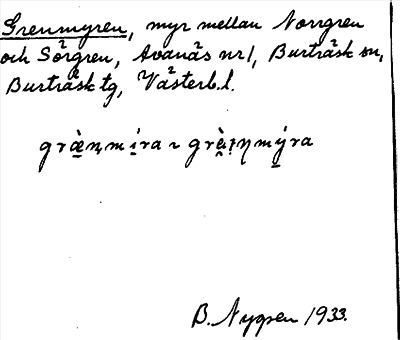 Grenmyren, myr mellan Norrgren
och Sörgren, Avanäs nr 1, Burträsk sn,
Burträsk tg, Västerb.l.
B. Nygren 1933.